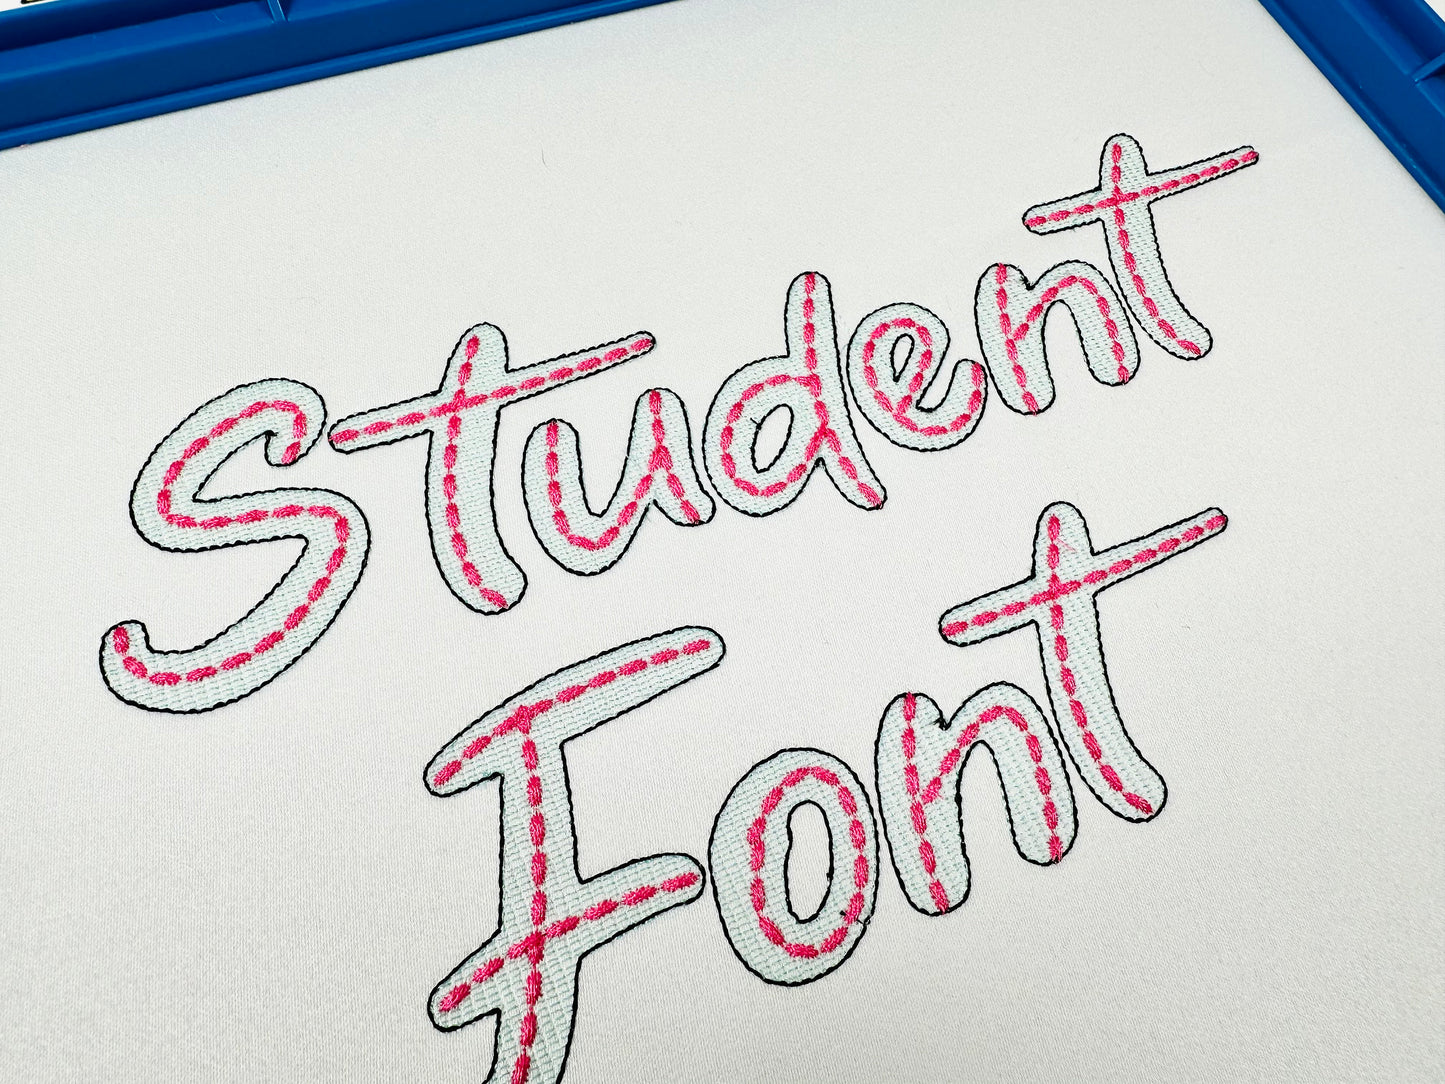 Student
Font